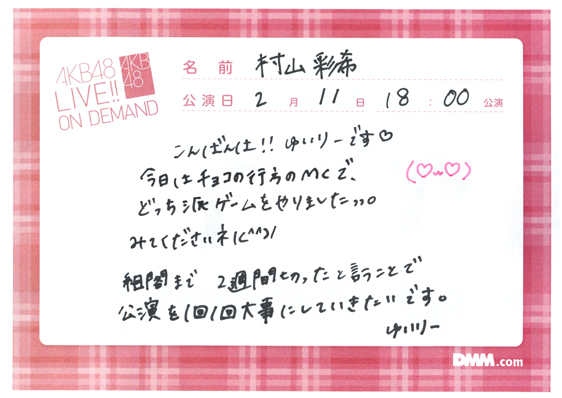 AKB48
LIVE!!
ON DEMAND
AKB
48
名 前 村山彩希
公演日 2 月 11 日 18 : 00 公演
こんばんは!! ゆいりーです♡
今日はチョコの行方のMCで、
(♡ω♡)
どっち派ゲームをやりましたっっ。
みてくださいネ!(^^)/
組閣まで 2週間切ったと言うことで
公演を1回1回大事にしていきたいです。
ゆいりー
DMM.com